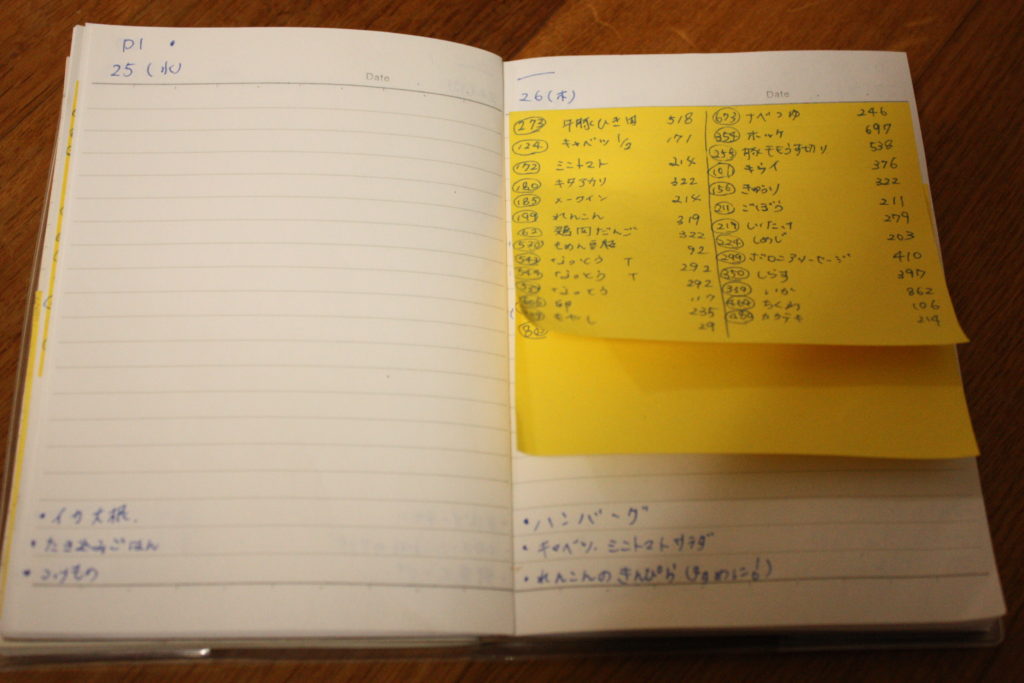 D1 •
25 (水)
Date
• イカ大根.
• たきこみごはん
• つけもの
26 (木)
Date
273 牛豚ひき肉 518
124 キャベツ 1/2 171
172 ミニトマト 214
180 キタアカリ 322
185 メークイン 214
199 れんこん 319
62 鶏肉だんご 322
もめん豆腐 92
なっとう T 292
なっとう T 292
なっとう 117
卵 235
もやし 29
673 ナベつゆ 246
ホッケ 697
259 豚モモうす切り 538
キライ 376
156 きゅうり 322
211 ごぼう 211
219 しいたけ 279
224 しめじ 203
299 ボロニアソーセージ 410
350 しらす 397
いか 862
ちくわ 106
カクテキ 214
• ハンバーグ
• キャベツ、ミニトマトサラダ
• れんこんのきんぴら